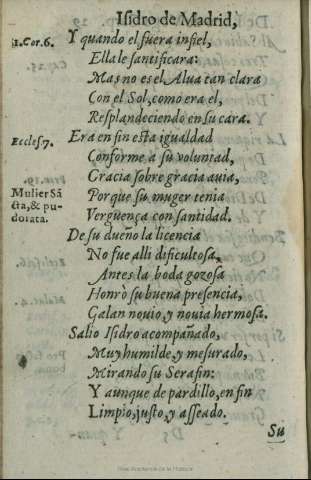 Isidro de Madrid,
1. Cor. 6.
Y quando el fuera infiel,
Ella le santificara:
Mas no es el Alua tan clara
Con el Sol, como era el,
Resplandeciendo en su cara.
Eccles 7.
Era en fin esta igualdad
Conforme à su voluntad,
Gracia sobre gracia auia,
Mulier Sã
cta, & pu-
dorata.
Porque su muger tenia
Verguença con santidad.
De su dueño la licencia
No fue alli dificultosa,
Antes la boda gozosa
Honrò su buena presencia,
Galan nouio, y nouia hermosa.
Salio Isidro acompañado,
Muy humilde, y mesurado,
Mirando su Serafin:
Y aunque de pardillo, en fin
Limpio, justo, y asseado.
Su
Real Academia de la Historia